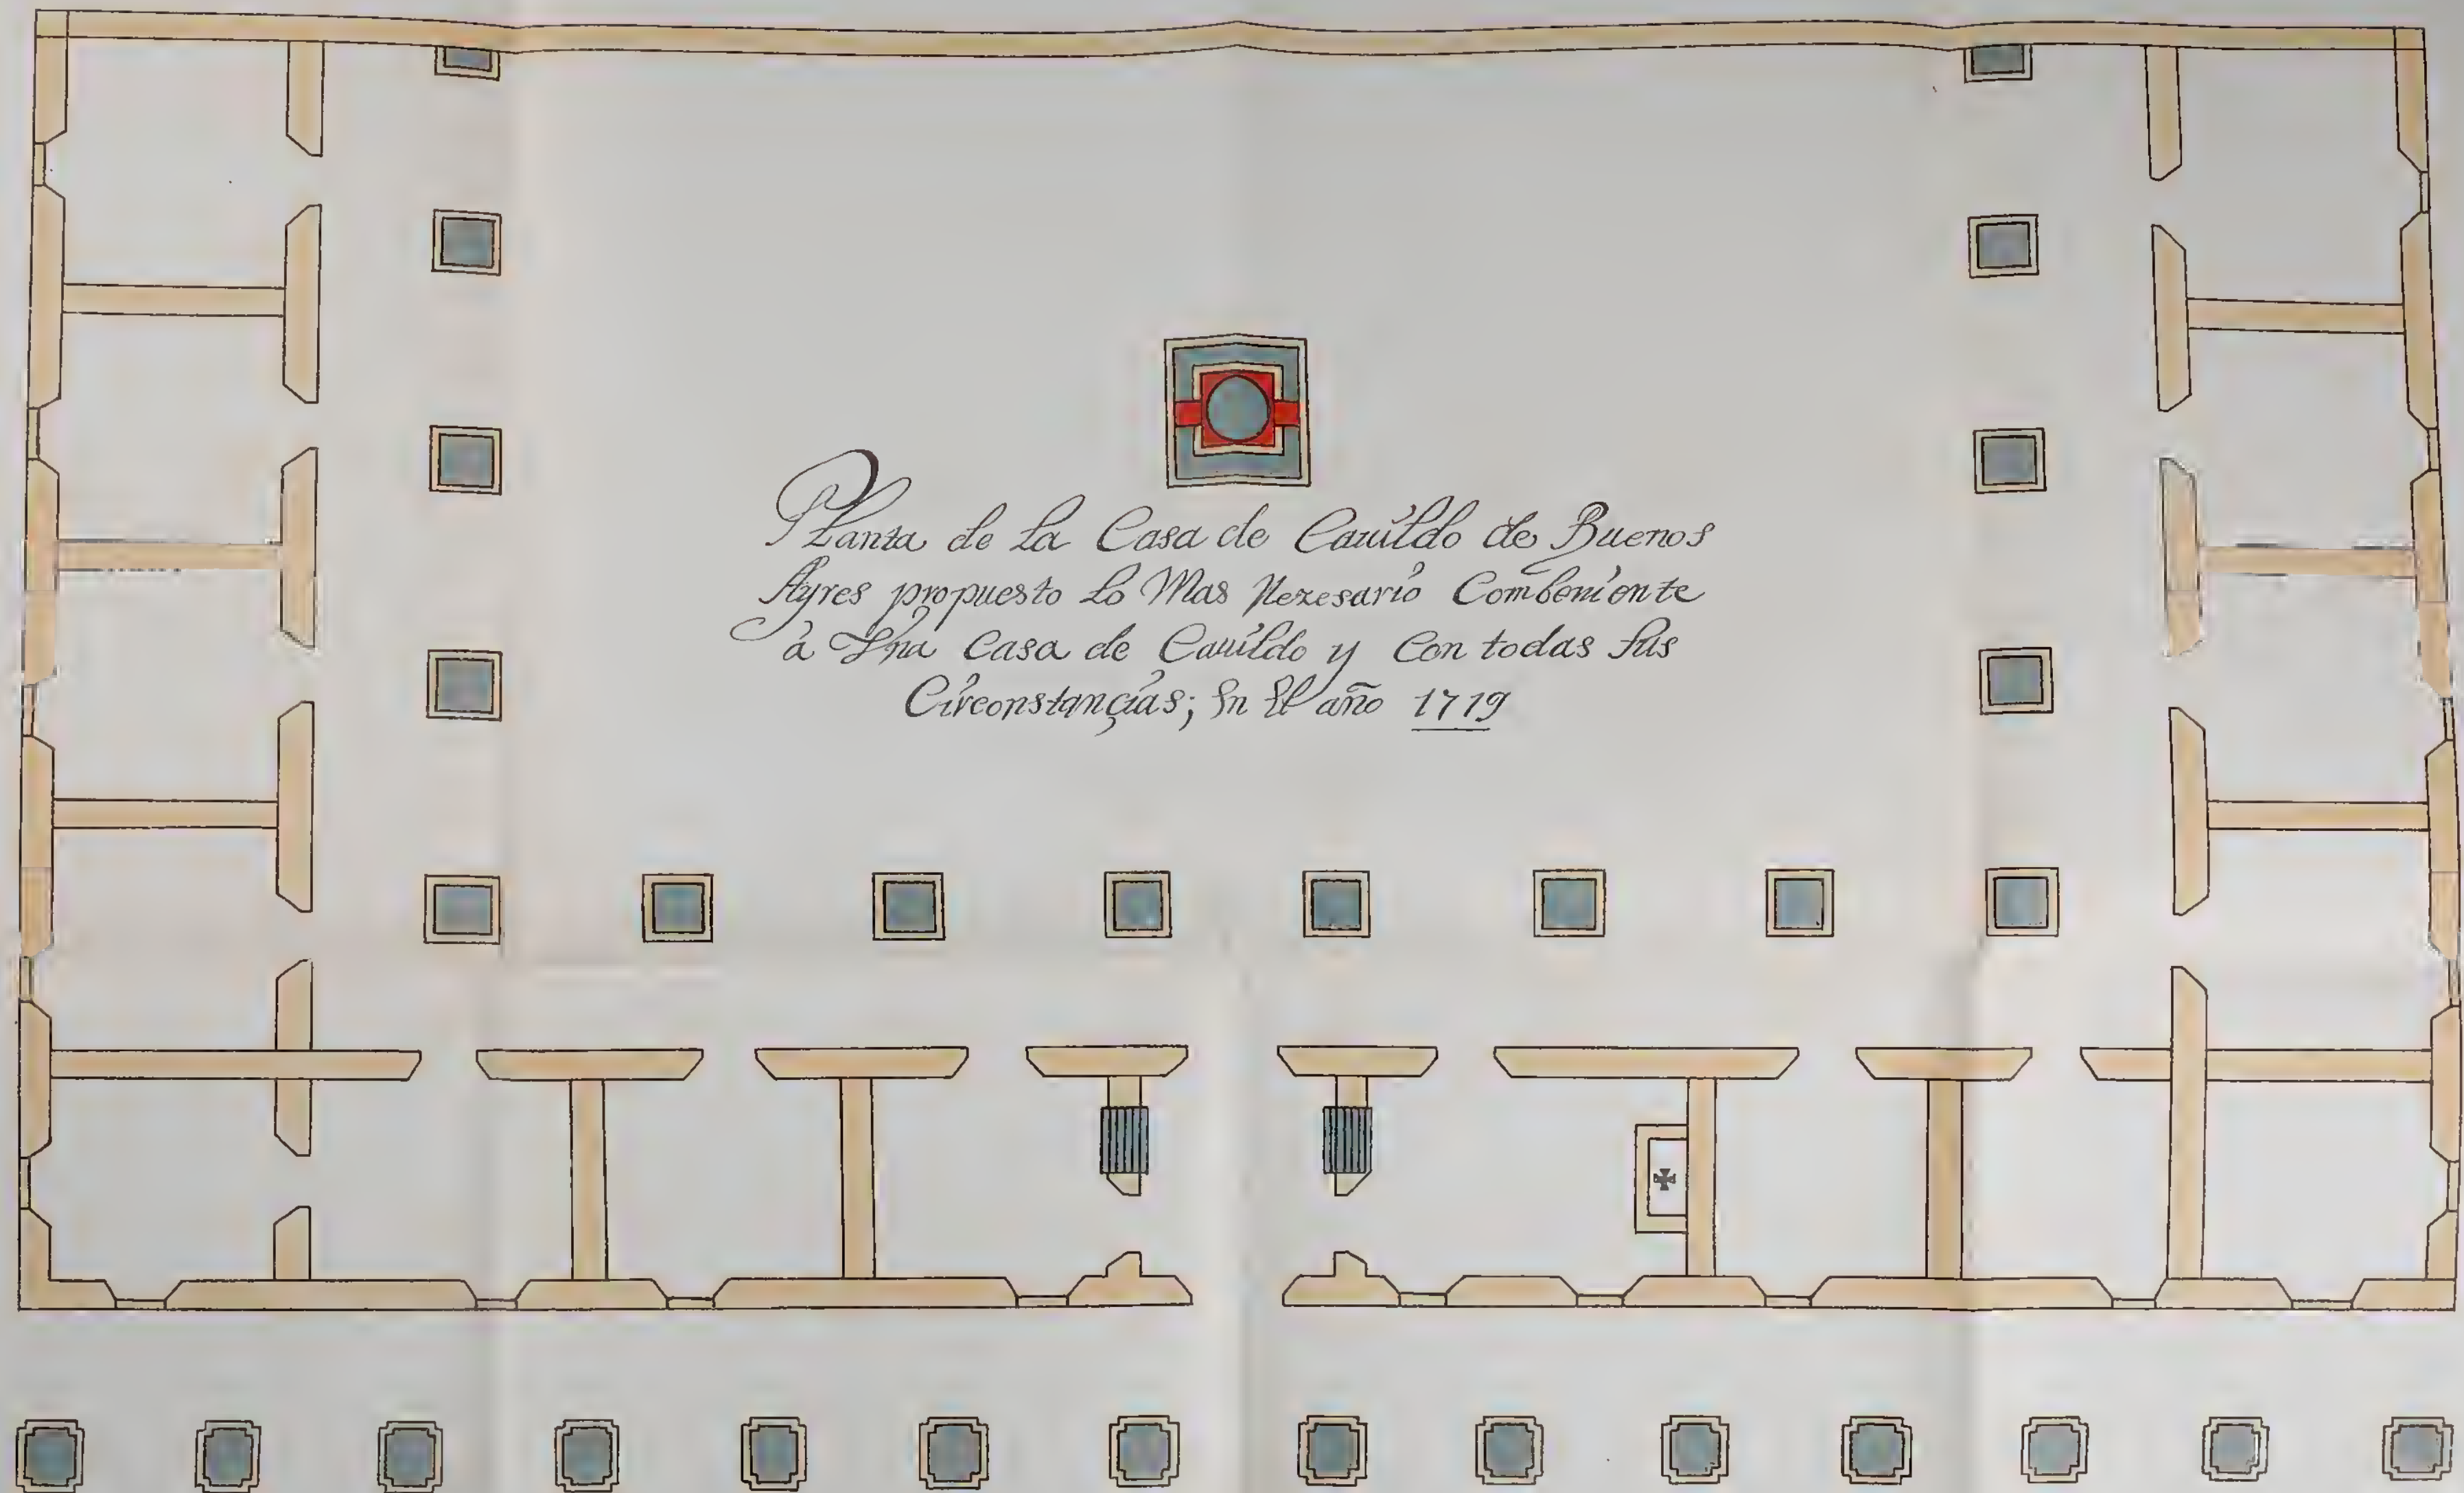 Planta de la Casa de Cauildo de Buenos
Ayres propuesto lo Mas Nezesario Combeniente
à Vna Casa de Cauildo y Con todas sus
Circonstançias; En El año 1719